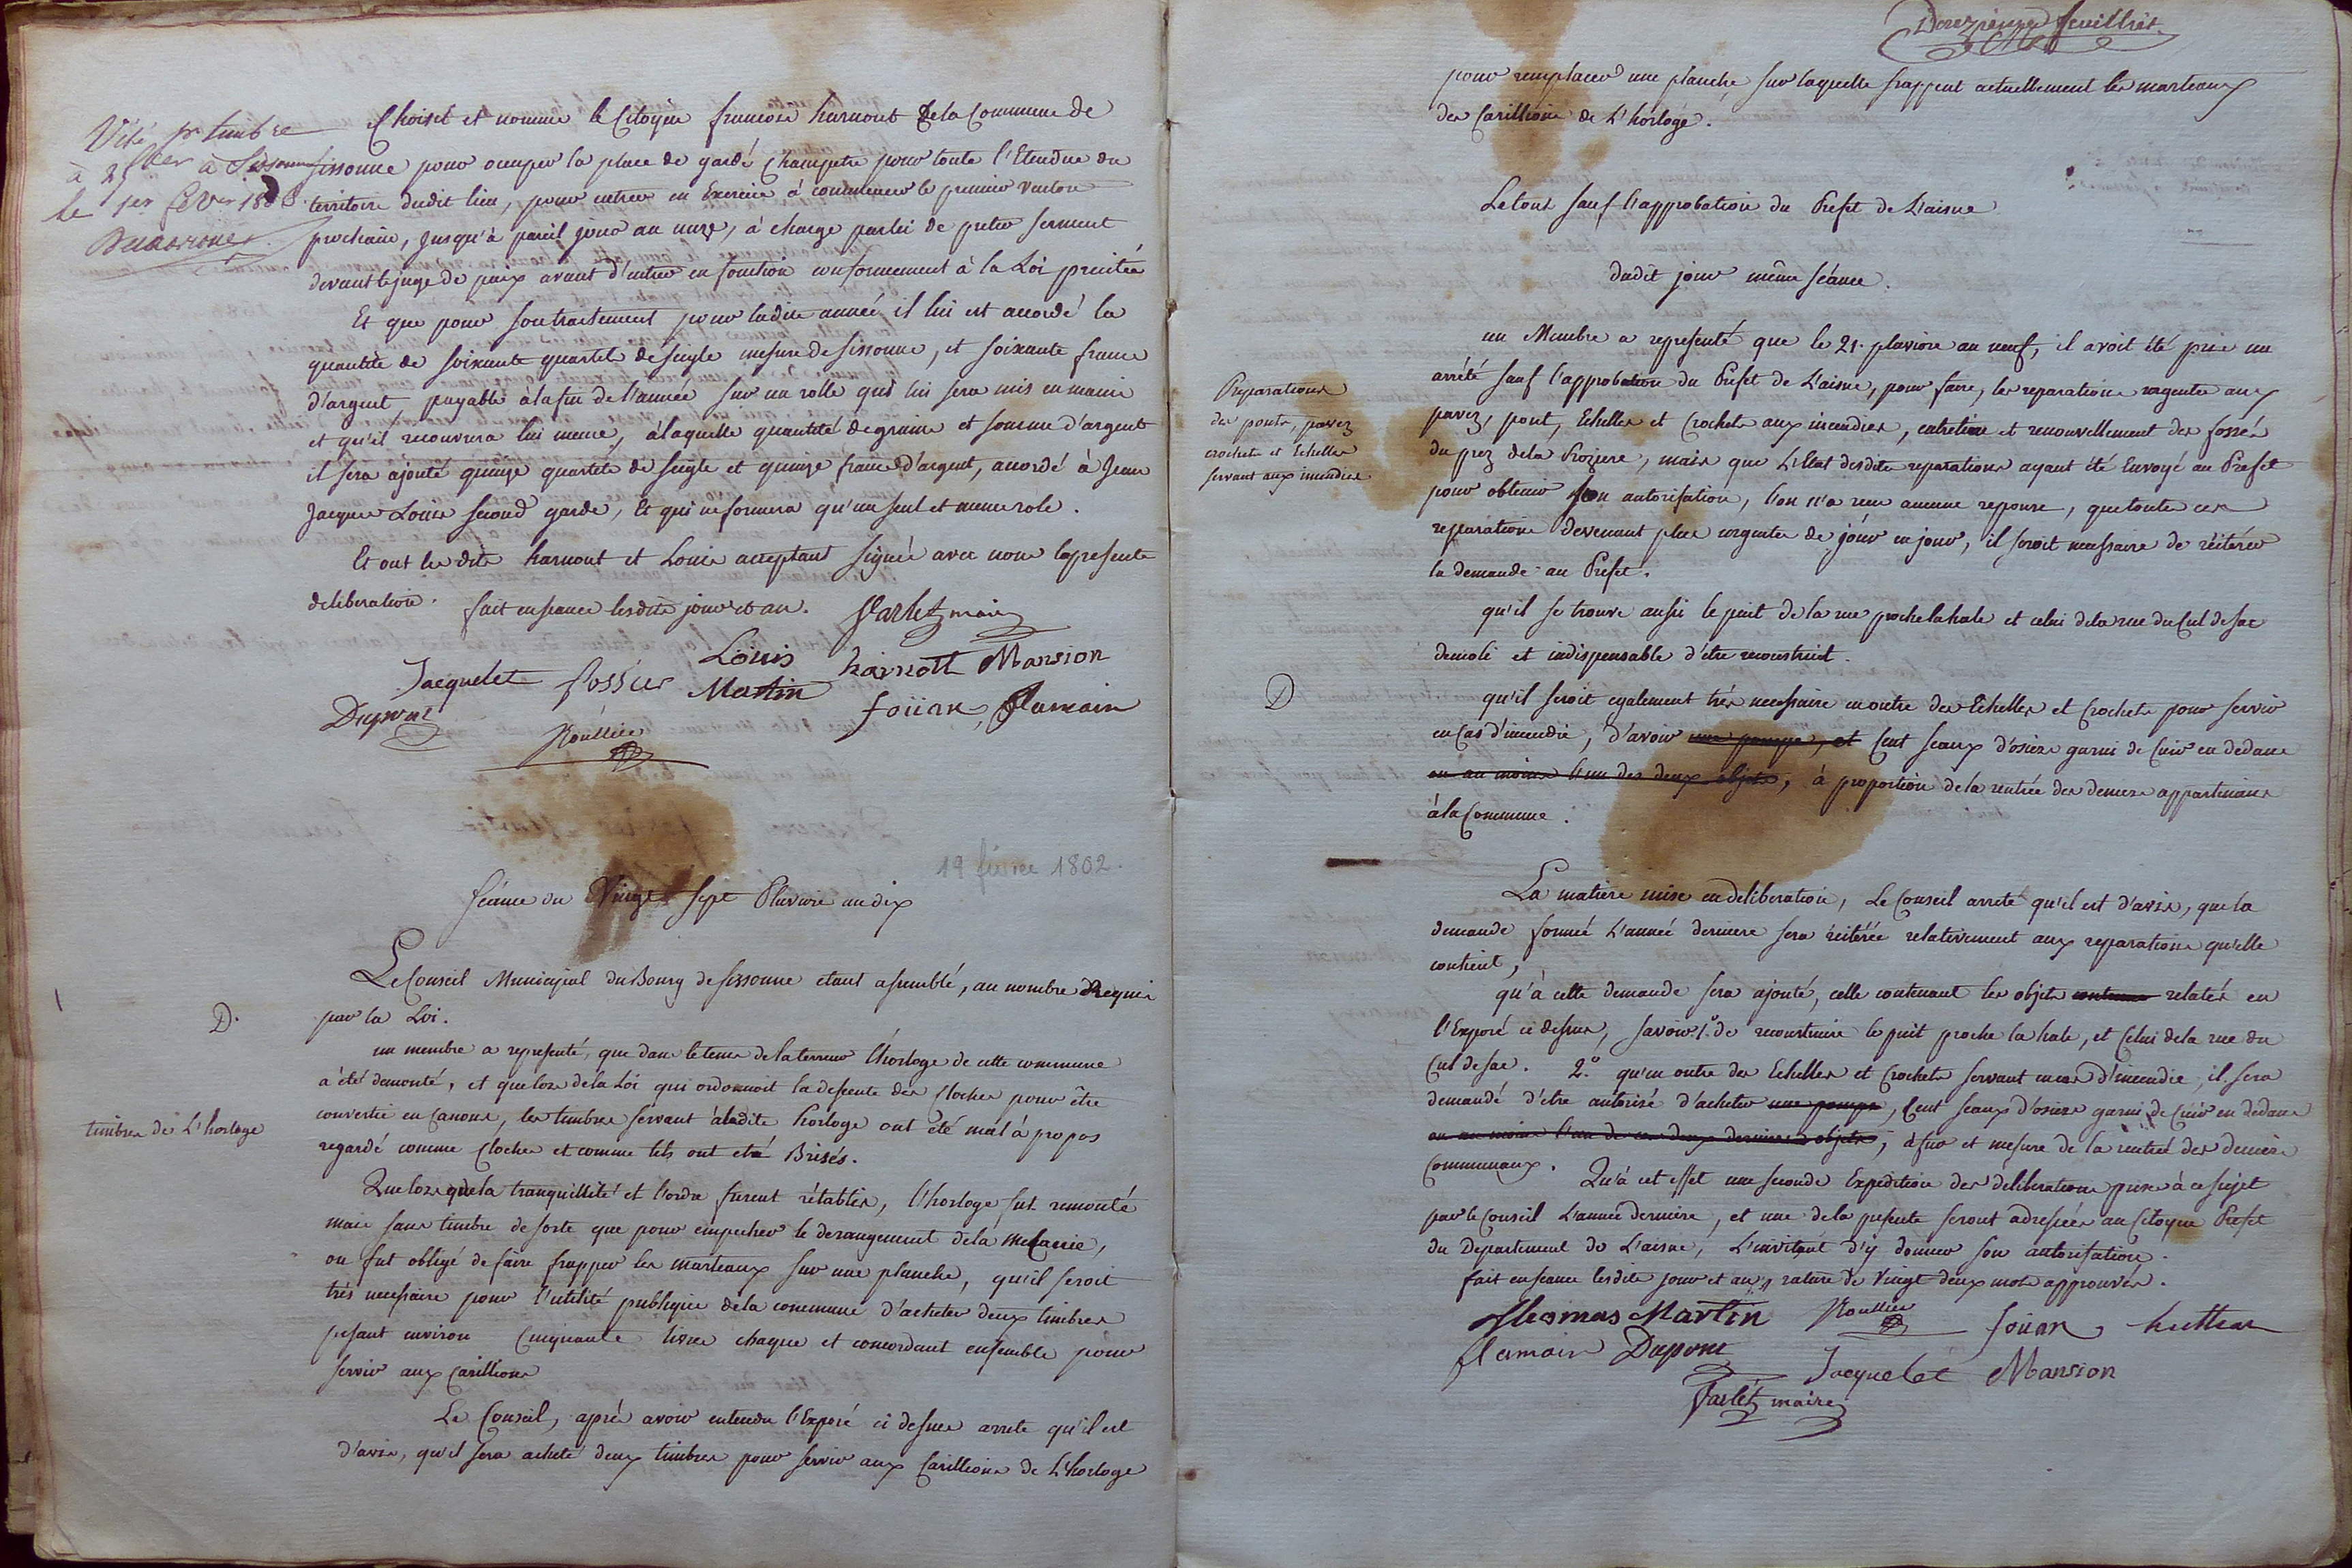 Visé pr timbre
à 25
le 1er
Choisit et nomme le Citoyen francois harnout de la Commune de
sissonne pour occuper la place de gardé Champetre pour toute l'Etendue du
territoire dudit lieu, pour entrer en Exercice à commencer le premier Ventose
prochain, jusqu'à pareil jour an onze, à charge par lui de preter serment
devant le juge de paix avant d'entrer en fonction conformement à la Loi precitée
Et que pour son traitement pour ladite année il lui est accordé la
quantité de soixante quartels de seigle mesure de sissonne, et soixante francs
d'argent, payable à la fin de l'année sur un rolle qui lui sera mis en mains
et qu'il recouvrera lui meme, à laquelle quantité de grains et somme d'argent
il sera ajouté quinze quartels de seigle et quinze francs d'argent, accordé à Jean
Jacques Louis second garde, et qui ne formera qu'un seul et meme role.
Et ont les dits harnout et Louis acceptant signés avec nous la presente
deliberation. fait en seance lesdits jour et an. farlet maire
Louis hainott Mansion
Jacquelet fossier Martin foüan, flamain
Dupont
Roullier
19 février 1802.
séance du Vingt sept Pluviose an dix
Le Conseil Municipal du Bourg de sissonne etant assemblé, au nombre Requis
D.
par la Loi.
un membre a representé, que dans le tems de la terreur l'horloge de cette commune
a été demonté, et que lors de la Loi qui ordonnoit la descente des Cloches pour être
convertie en Canons, les timbres servant à ladite horloge ont été mal à propos
timbres de L'horloge
regardé comme Cloches et comme tels ont eté Brisés.
Que lors que la tranquillité et l'ordre furent rétablis, l'horloge fut remonté
mais sans timbre de sorte que pour empecher le derangement de la
on fut obligé de faire frapper les marteaux sur une planche, qu'il seroit
très necessaire pour l'utilité publique de la commune d'acheter deux timbres
pesant environ Cinquante livres chaque et concordant ensemble pour
servir aux Carillions
Le Conseil, après avoir entendu l'Exposé ci dessus arrete qu'il est
d'avis, qu'il sera acheté deux timbres pour servir aux Carillions de L'horloge
Douzieme feuillet
pour remplacer une planche sur laquelle frappent actuellement les marteaux
des Carillions de L'horloge.
Le tout sauf l'approbation du Prefet de L'aisne
dudit jour même séance.
un Membre a representé que le 21. pluviose an neuf, il avoit été pris un
arrété sauf l'approbation du Prefet de L'aisne, pour faire, les reparations urgentes aux
Reparations
des ponts, pavez
crochets et Echelles
servant aux incendies
pavez, pont, Echelles et Crochets aux incendies, entretien et renouvellement des fossés
du prez de la, mais que L'Etat desdites reparations ayant été Envoyé au Prefet
pour obtenir son autorisation, l'on n'a reçu aucune reponse, que toutes ces
reparations devenant plus urgentes de jour en jour, il seroit necessaire de réitérer
la demande au Prefet.
qu'il se trouve aussi le puit de la rue proche la hale et celui de la rue du Cul de sac
demoli et indispensable d'etre reconstruit.
D
qu'il seroit egalement très necessaire en outre des Echelles et Crochets pour servir
en Cas d'incendie, d'avoir une pompe, et Cent seaux d'osiers garni de Cuir en dedans
ou au moins l'un des deux objets, à proportion de la rentrée des deniers appartenans
à la Commune.
La matiere mise en deliberation, Le Conseil arrete qu'il est d'avis, que la
demande formée L'année derniere sera réitérée relativement aux reparations qu'elle
contient,
qu'à cette demande sera ajouté, celle contenant les objets contenus relatés en
l'Exposé ci dessus, savoir 1.° de reconstruire le puit proche la hale, et Celui de la rue du
Cul de sac. 2.° qu'en outre des Echelles et Crochets servant en cas d'incendie, il sera
demandé d'etre autorisé d'acheter une pompe, Cent seaux d'osiers garni de Cuir en dedans
ou au moins l'un de ces deux derniers objets, à fur et mesure de la rentrée des deniers
Communaux. Qu'à cet effet une seconde Expedition des deliberations prises à ce sujet
par le Conseil L'année derniere, et une de la presente seront adressées au Citoyen Prefet
du Departement de L'aisne, L'invitant d'y donner son autorisation.
fait en seance lesdits jour et an, rature de Vingt deux mots approuvés.
Thomas Martin Roullier foüan
flamain Dupont
Jacquelet Mansion
farlet maire